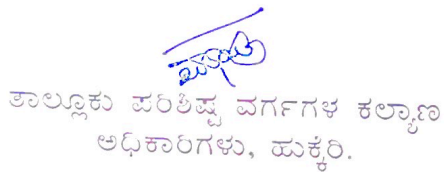 ತಾಲ್ಲೂಕು ಪರಿಶಿಷ್ಟ ವರ್ಗಗಳ ಕಲ್ಯಾಣ
ಅಧಿಕಾರಿಗಳು, ಹುಕ್ಕೇರಿ.